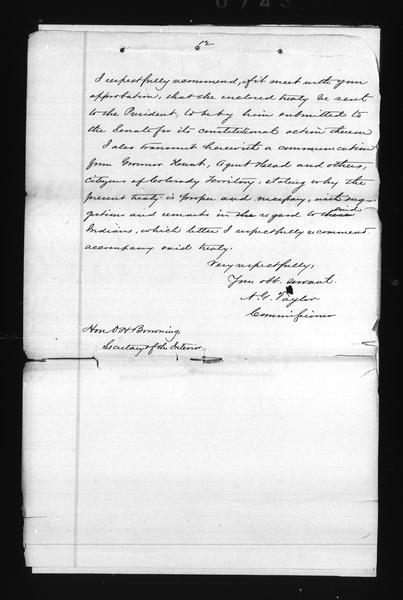 I respectfully recommend, if it meet with your
approbation, that the enclosed treaty be sent
to the President, to be by him submitted to
the Senate for its constitutional action thereon
I also transmit herewith a communication
from Governor Hunt, Agent Head and others,
citizens of Colorado Territory, stating why the
present treaty is proper and necessary, with sug-
gestions and remarks in regard to said
Indians, which letter I respectfully recommend
accompany said treaty.
Very respectfully,
Your obt. servant.
N. G. Taylor
Commissioner
Hon. O. H. Browning,
Secretary of the Interior.